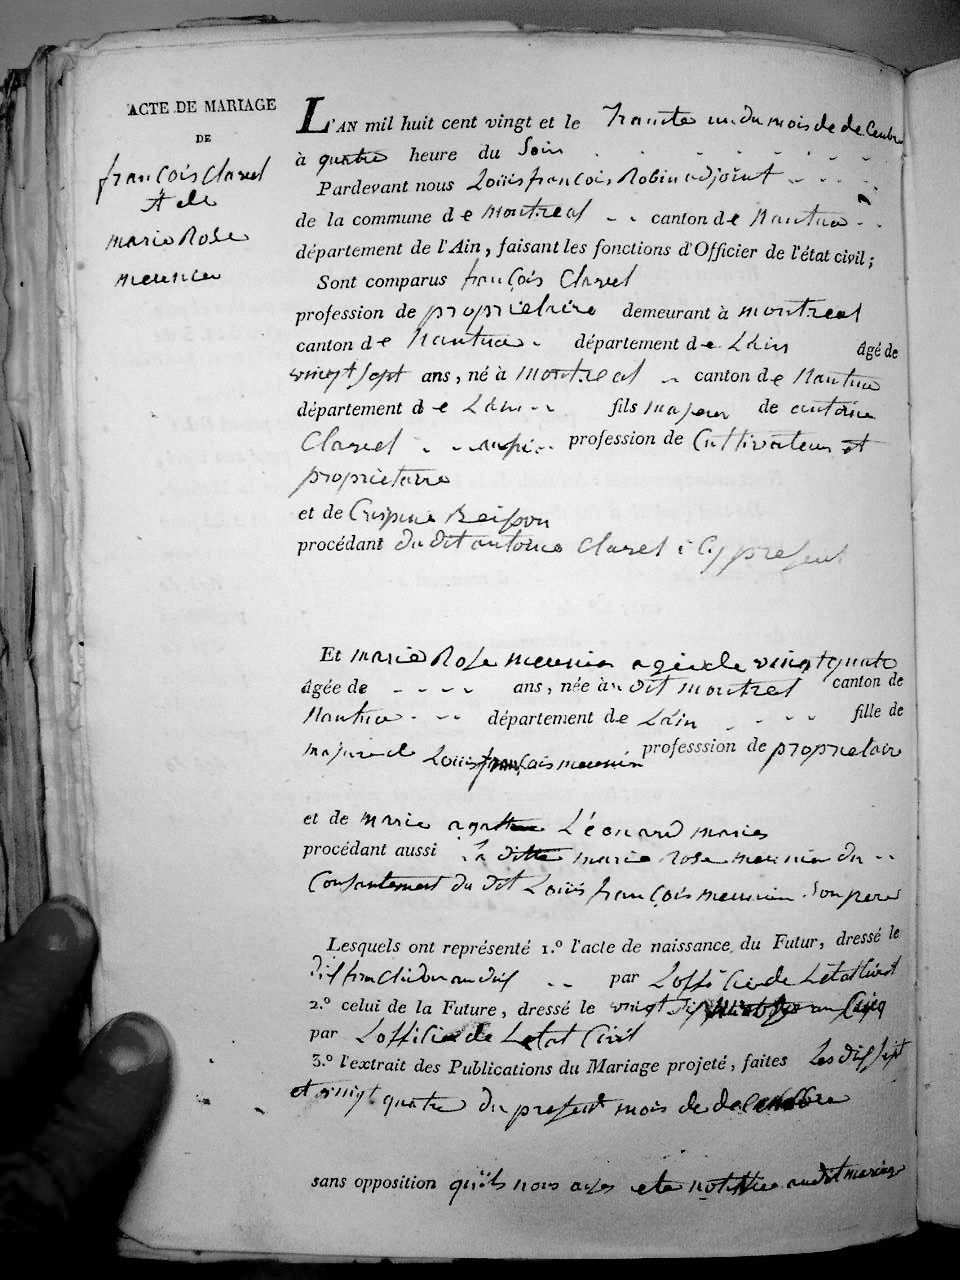 ACTE DE MARIAGE
DE
françois Claret
et de
marie Rose
meunier
L'AN mil huit cent vingt et le Trante un du mois de decembre
à quatre heure du Soir
Pardevant nous Loüis françois Robin adjoint
de la commune de Montreal canton de Nantua
département de l'Ain, faisant les fonctions d'Officier de l'état civil;
Sont comparus françois Claret
profession de propriétaire demeurant à montreal
canton de Nantua département de Lain âgé de
vingt sept ans, né à montreal canton de Nantua
département de Lain fils majeur de antoine
Claret profession de Cultivateur et
proprietaire
et de Crispine
procédant du dit antoine Claret i Cy present
Et marie Rose meunier agée de vingt quatre
âgée de ans, née au dit montreal canton de
Nantua département de Lain fille de
majure de Loüis françois meunier professsion de proprietaire
et de marie agathe Léonard maries
procédant aussi la ditte marie Rose meunier du
Consantement du dit Loüis françois meunier Son pere
Lesquels ont représenté 1.º l'acte de naissance du Futur, dressé le
par Lofficier de Létat Civil
2.º celui de la Future, dressé le vingt an Cinq
par Lofficier de Letat Civil
3.º l'extrait des Publications du Mariage projeté, faites Les dix sept
et vingt quatre du present mois de decembre
sans opposition qui ete notiffiee audit mariage